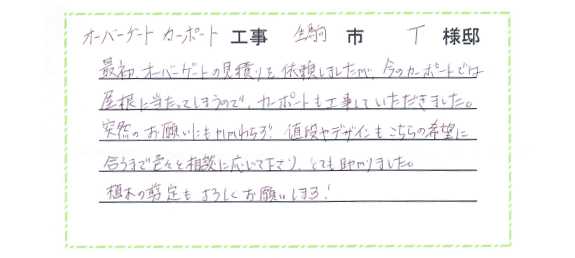 オーバーゲート カーポート 工事 生駒 市 T 様邸
最初、オーバーゲートの見積りを依頼しましたが、今のカーポートでは
屋根に当たってしまうので、カーポートも工事していただきました。
突然のお願いにもかかわらず、値段やデザインもこちらの希望に
合うまで色々と相談に応じて下さり、とても助かりました。
植木の剪定もよろしくお願いします!